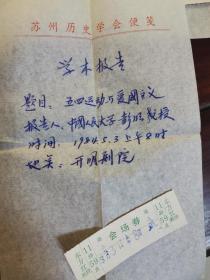 苏州历史学会便笺
学术报告
题目：五四运动与爱国主义
报告人：中国人民大学 彭明教授
时间：1984.5.3上午8时
地点：开明剧院
会场券